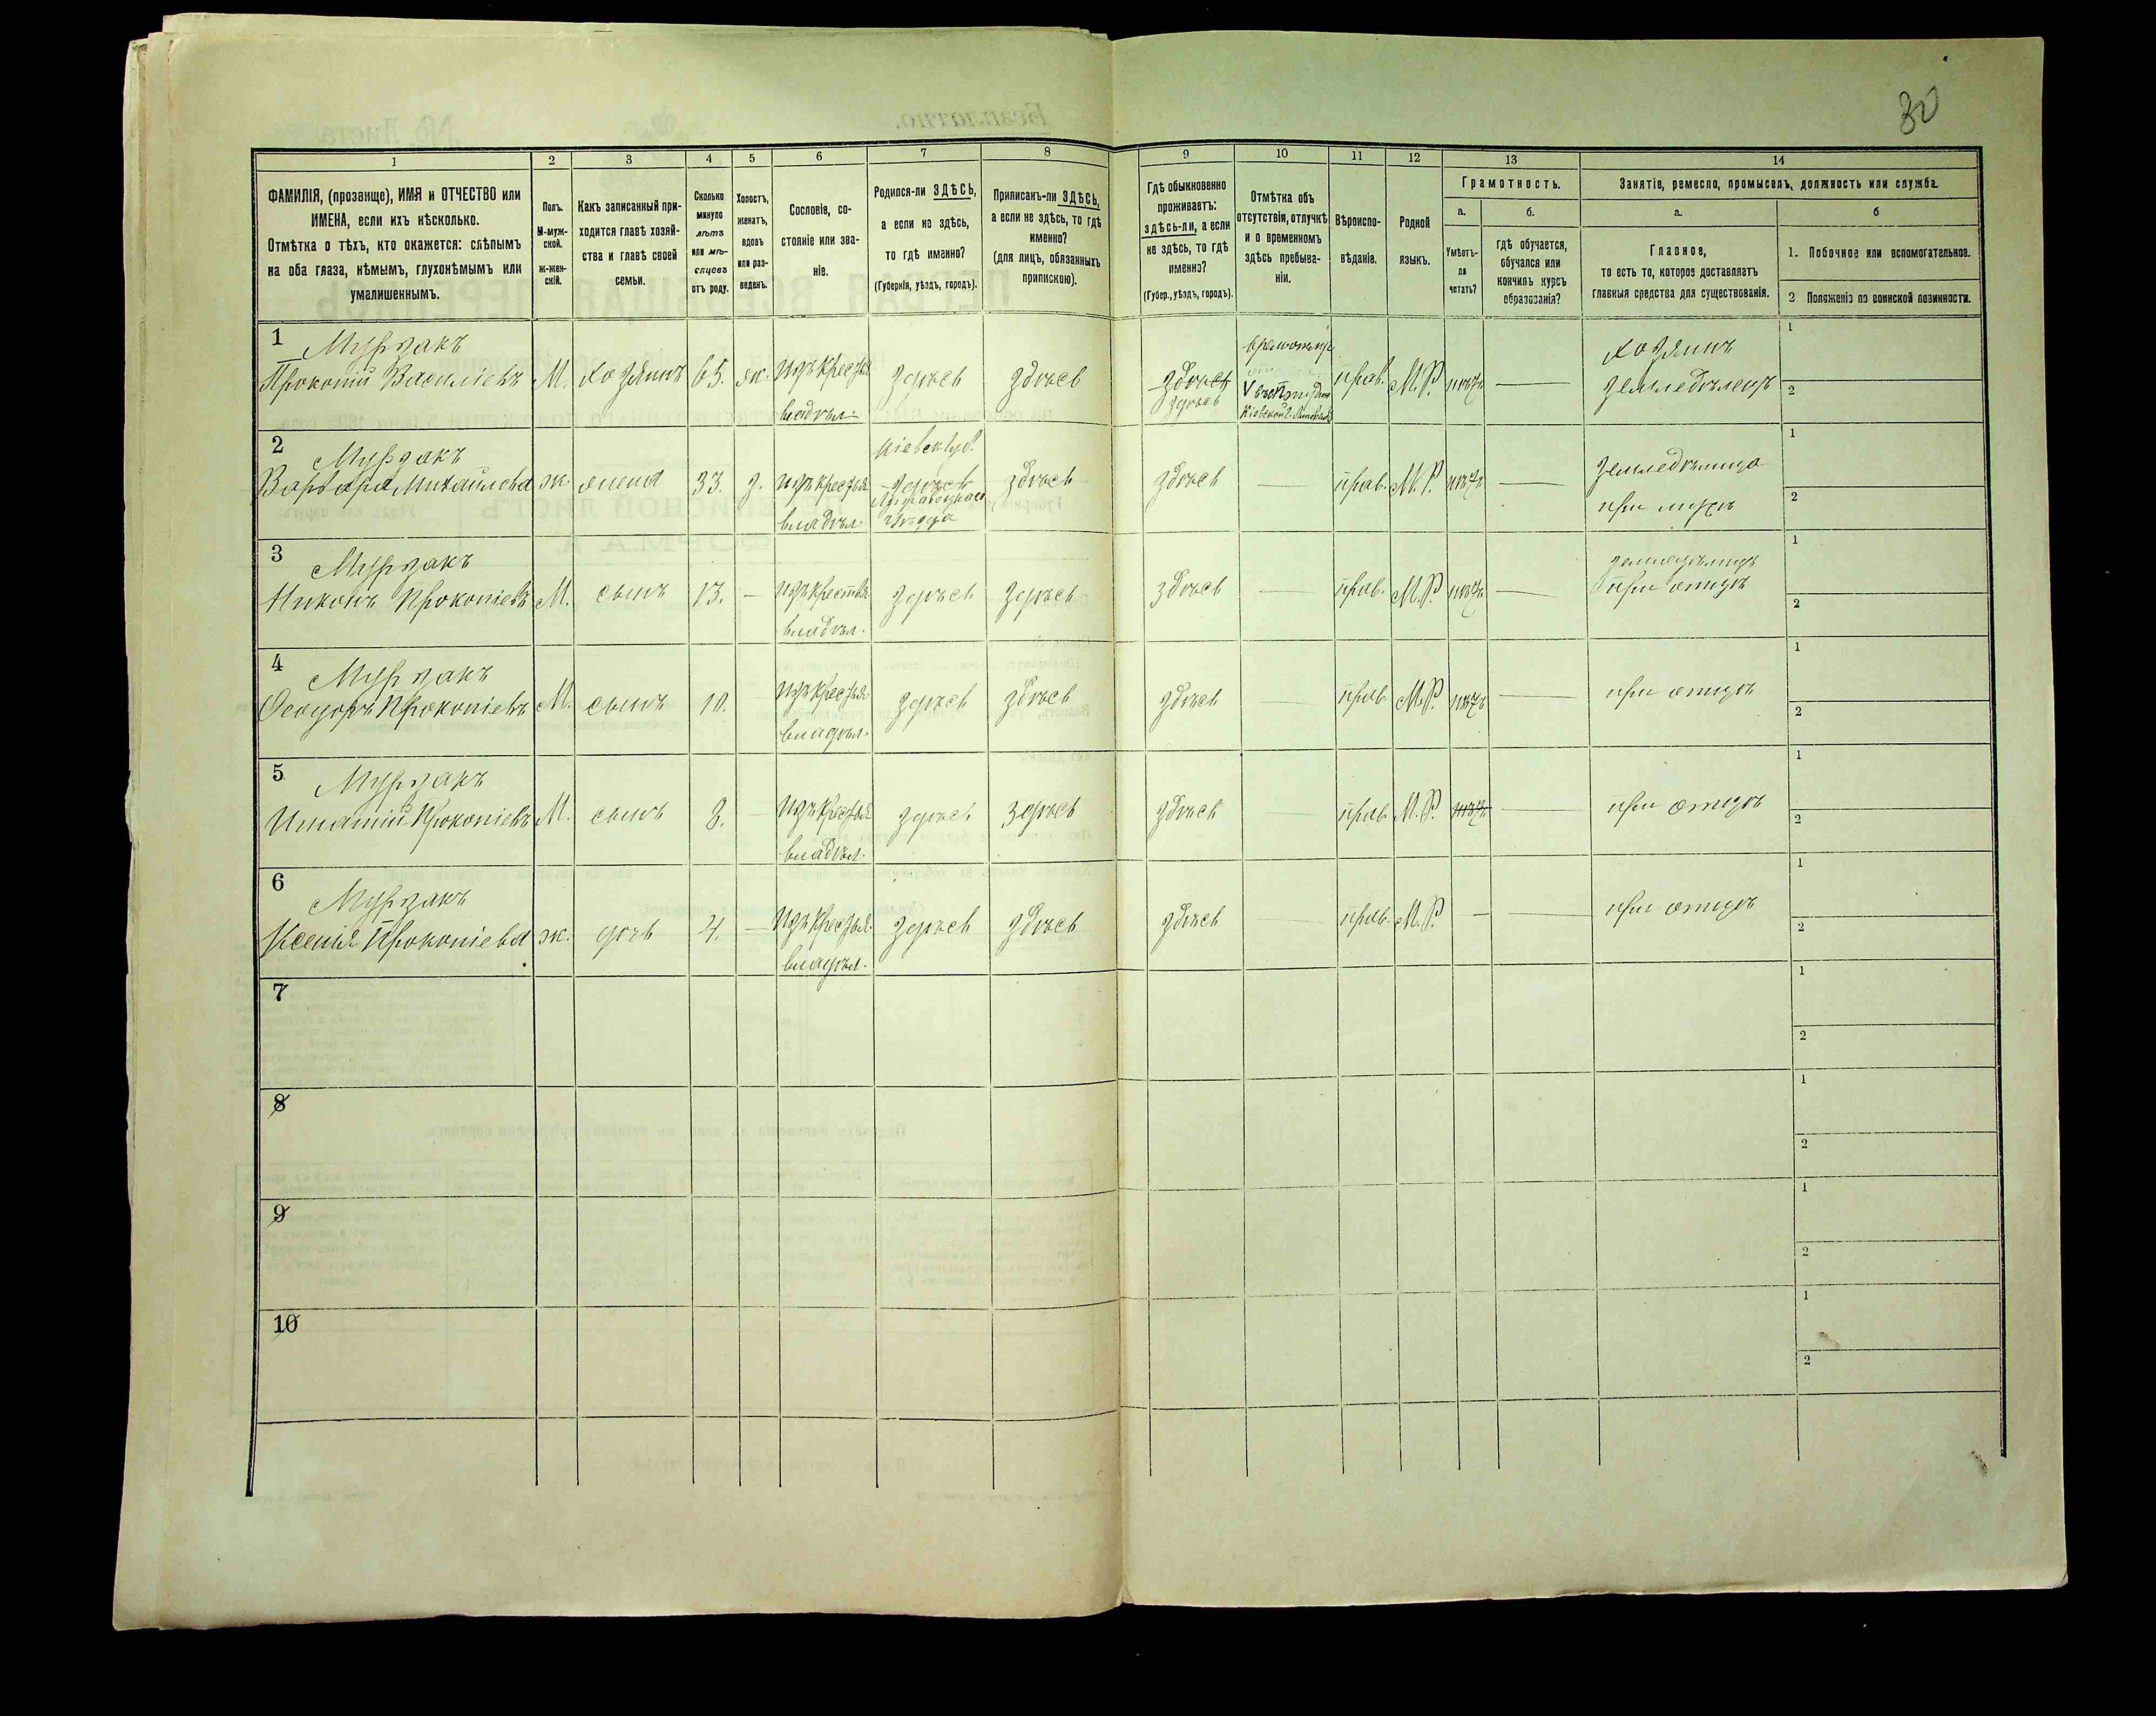 30
1
2
3
4
5
6
7
8
9
10
11
12
13
14
ФАМИЛІЯ, (прозвище), ИМЯ и ОТЧЕСТВО или
ИМЕНА, если ихъ нѣсколько.
Отмѣтка о тѣхъ, кто окажется: слѣпымъ
на оба глаза, нѣмымъ, глухонѣмымъ или
умалишеннымъ.
Полъ.
М-муж-
ской.
ж-жен-
скій.
Какъ записанный при-
ходится главѣ хозяй-
ства и главѣ своей
семьи.
Сколько
минуло
лѣтъ
или мѣ-
сяцевъ
отъ роду.
Холостъ,
женатъ,
вдовъ
или раз-
веденъ.
Сословіе, со-
стояніе или зва-
ніе.
Родился-ли ЗДѢСЬ,
а если не здѣсь,
то гдѣ именно?
(Губернія, уѣздъ, городъ).
Приписанъ-ли ЗДѢСЬ,
а если не здѣсь, то гдѣ
именно?
(для лицъ, обязанныхъ
припискою).
Гдѣ обыкновенно
проживаетъ:
здѣсь-ли, а если
не здѣсь, то гдѣ
именно?
(Губер., уѣздъ, городъ).
Отмѣтка объ
отсутствіи, отлучкѣ
и о временномъ
здѣсь пребыва-
ніи.
Вѣроиспо-
вѣданіе.
Родной
языкъ.
Грамотность.
а.
б.
Умѣетъ-
ли
читать?
гдѣ обучается,
обучался или
кончилъ курсъ
образованія?
Занятіе, ремесло, промыселъ, должность или служба.
а.
б
Главное,
то есть то, которое доставляетъ
главныя средства для существованія.
1. Побочное или вспомогательное.
2 Положеніе по воинской повинности.
1 Мурзакъ
Прокопій Василіевъ М. хозяинъ 65. ж. изъ крестья владѣл. здѣсь здѣсь здѣсь здѣсь прав. М.Р. нѣтъ — хозяинъ земледѣлецъ
1
2
2 Мурзакъ
Варвара Михайлова ж. жена 33. з. изъ крестья владѣл. Кіевск губ. здѣсь уѣзда здѣсь здѣсь — прав. М.Р. нѣтъ — земледѣлица при мужѣ
1
2
3 Мурзакъ
Никонъ Прокопіевъ М. сынъ 13. — изъ крестья владѣл. здѣсь здѣсь здѣсь — прав. М.Р. нѣтъ — при отцѣ
1
2
4 Мурзакъ
Ѳеодоръ Прокопіевъ М. сынъ 10. — изъ крестья владѣл. здѣсь здѣсь здѣсь — прав М.Р. нѣтъ — при отцѣ
1
2
5 Мурзакъ
Игнатій Прокопіевъ М. сынъ 8. — изъ крестья владѣл. здѣсь здѣсь здѣсь — прав М.Р. нѣтъ — при отцѣ
1
2
6 Мурзакъ
Ксенія Прокопіева ж. дочь 4. — изъ крестья владѣл. здѣсь здѣсь здѣсь — прав. М.Р. — — при отцѣ
1
2
7
1
2
8
1
2
9
1
2
10
1
2